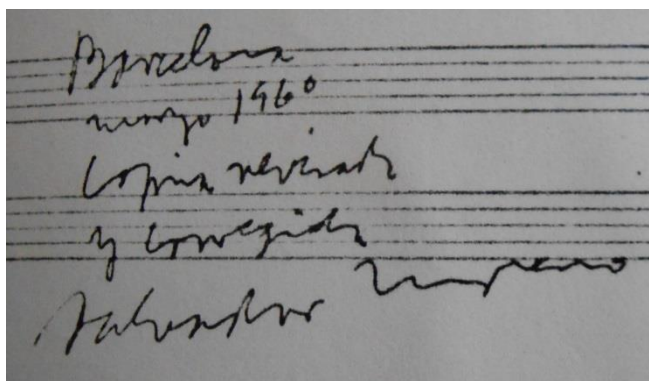 Barcelona
marzo 1960
Copia revisada
y corregida
Salvador Moreno